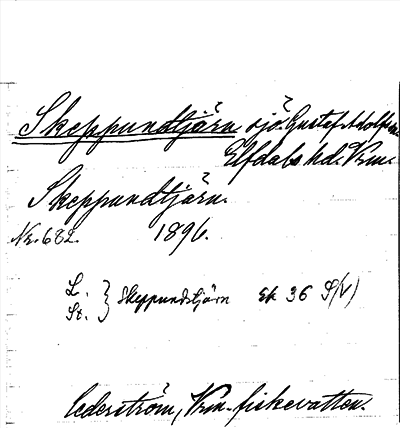 Skeppundtjärn sjö. Gustaf Adolfs sn.
Elfdals hd. Vrm.
Skeppundtjärn.
Nr. 682. 1896.
L. } Skeppundstjärn Ek 36 S(V)
St.
Cederström, Vrm. fiskevatten.